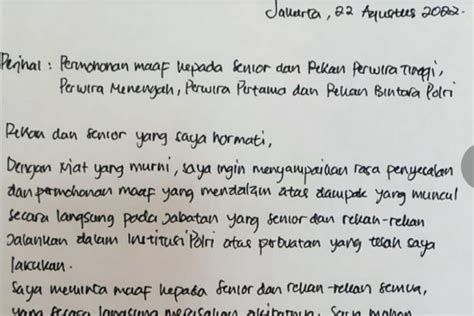 Jakarta, 22 Agustus 2022.
Perihal : Permohonan maaf kepada Senior dan Rekan Perwira Tinggi,
Perwira Menengah, Perwira Pertama dan Rekan Bintara Polri
Rekan dan senior yang saya hormati,
Dengan niat yang murni, saya ingin menyampaikan rasa penyesalan
dan permohonan maaf yang mendalam atas dampak yang muncul
secara langsung pada jabatan yang senior dan rekan-rekan
jalankan dalam institusi Polri atas perbuatan yang telah saya
lakukan.
Saya meminta maaf kepada senior dan rekan-rekan semua,
yang secara langsung merasakan akibatnya. Saya mohon